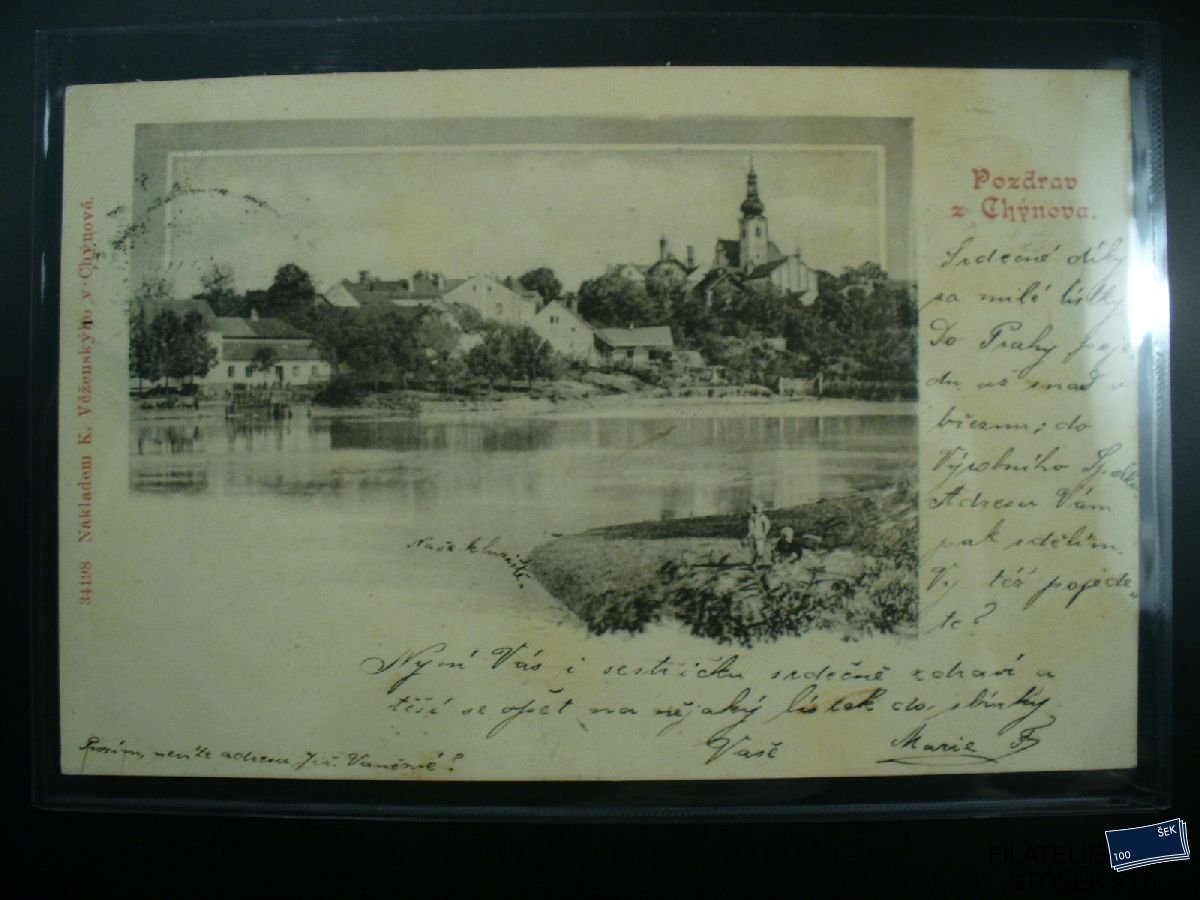 Pozdrav
z Chýnova.
Srdečné díky
za milé lístky
Do Prahy poje
du, až snad v
březnu; do
Výrobního Spolku.
Adresu Vám
pak sdělím.
Vy též pojede„
te?
34198 Nakladem K. Věženského v Chýnově.
Naše kluziště.
Nyní Vás i sestřičku srdečně zdraví a
těší se opět na nějaký lístek do sbírky
Vaše Marie F
Prosím, neníže adresu Jiř. Vaněrné?
100 ŠEK
FILATELIE
STOŠEK s.r.o.